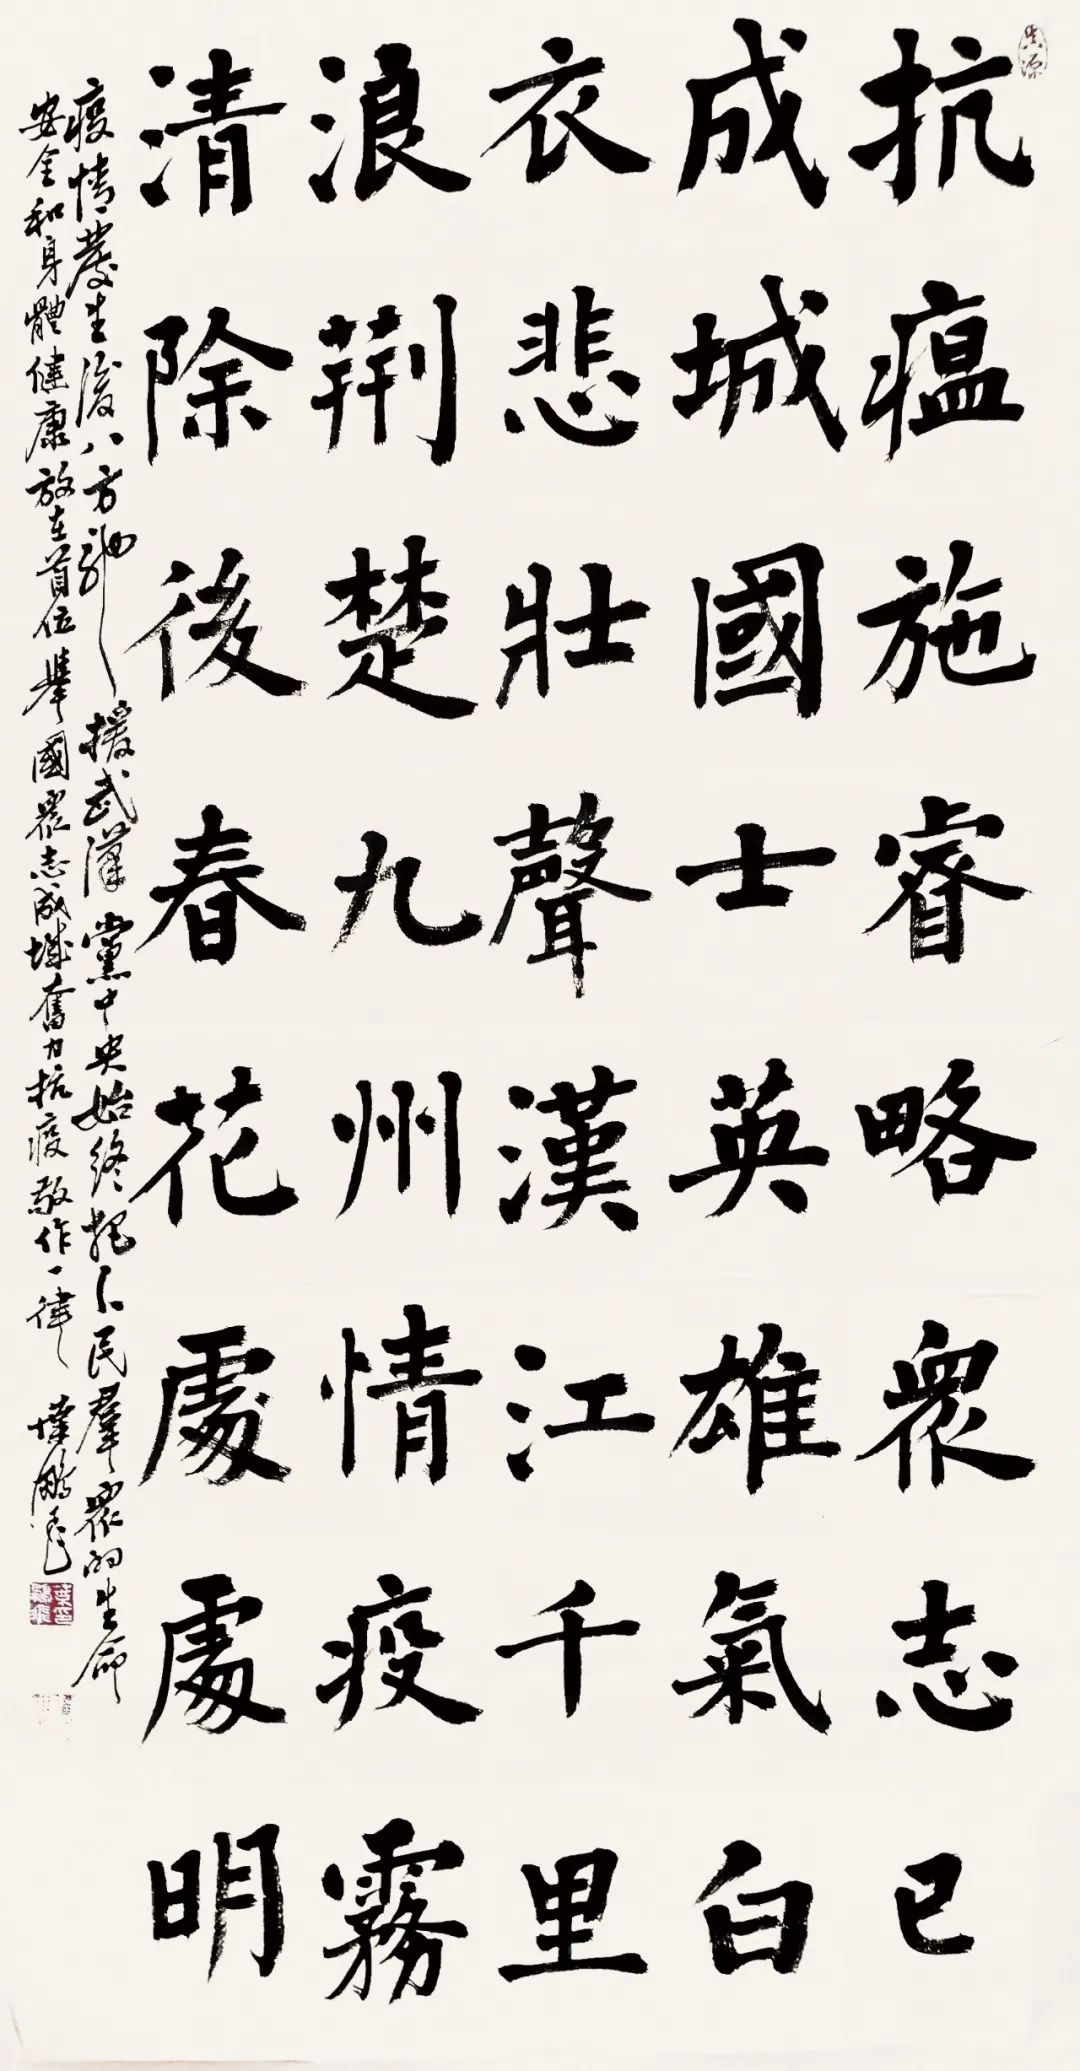 抗瘟施睿略眾志已
成城國士英雄氣白
衣悲壯聲漢江千里
浪荆楚九州情疫霧
清除後春花處處明
疫情發生後八方馳援武漢黨中央始終把人民羣眾的生命
安全和身體健康放在首位舉國眾志成城奮力抗疫敬作一律